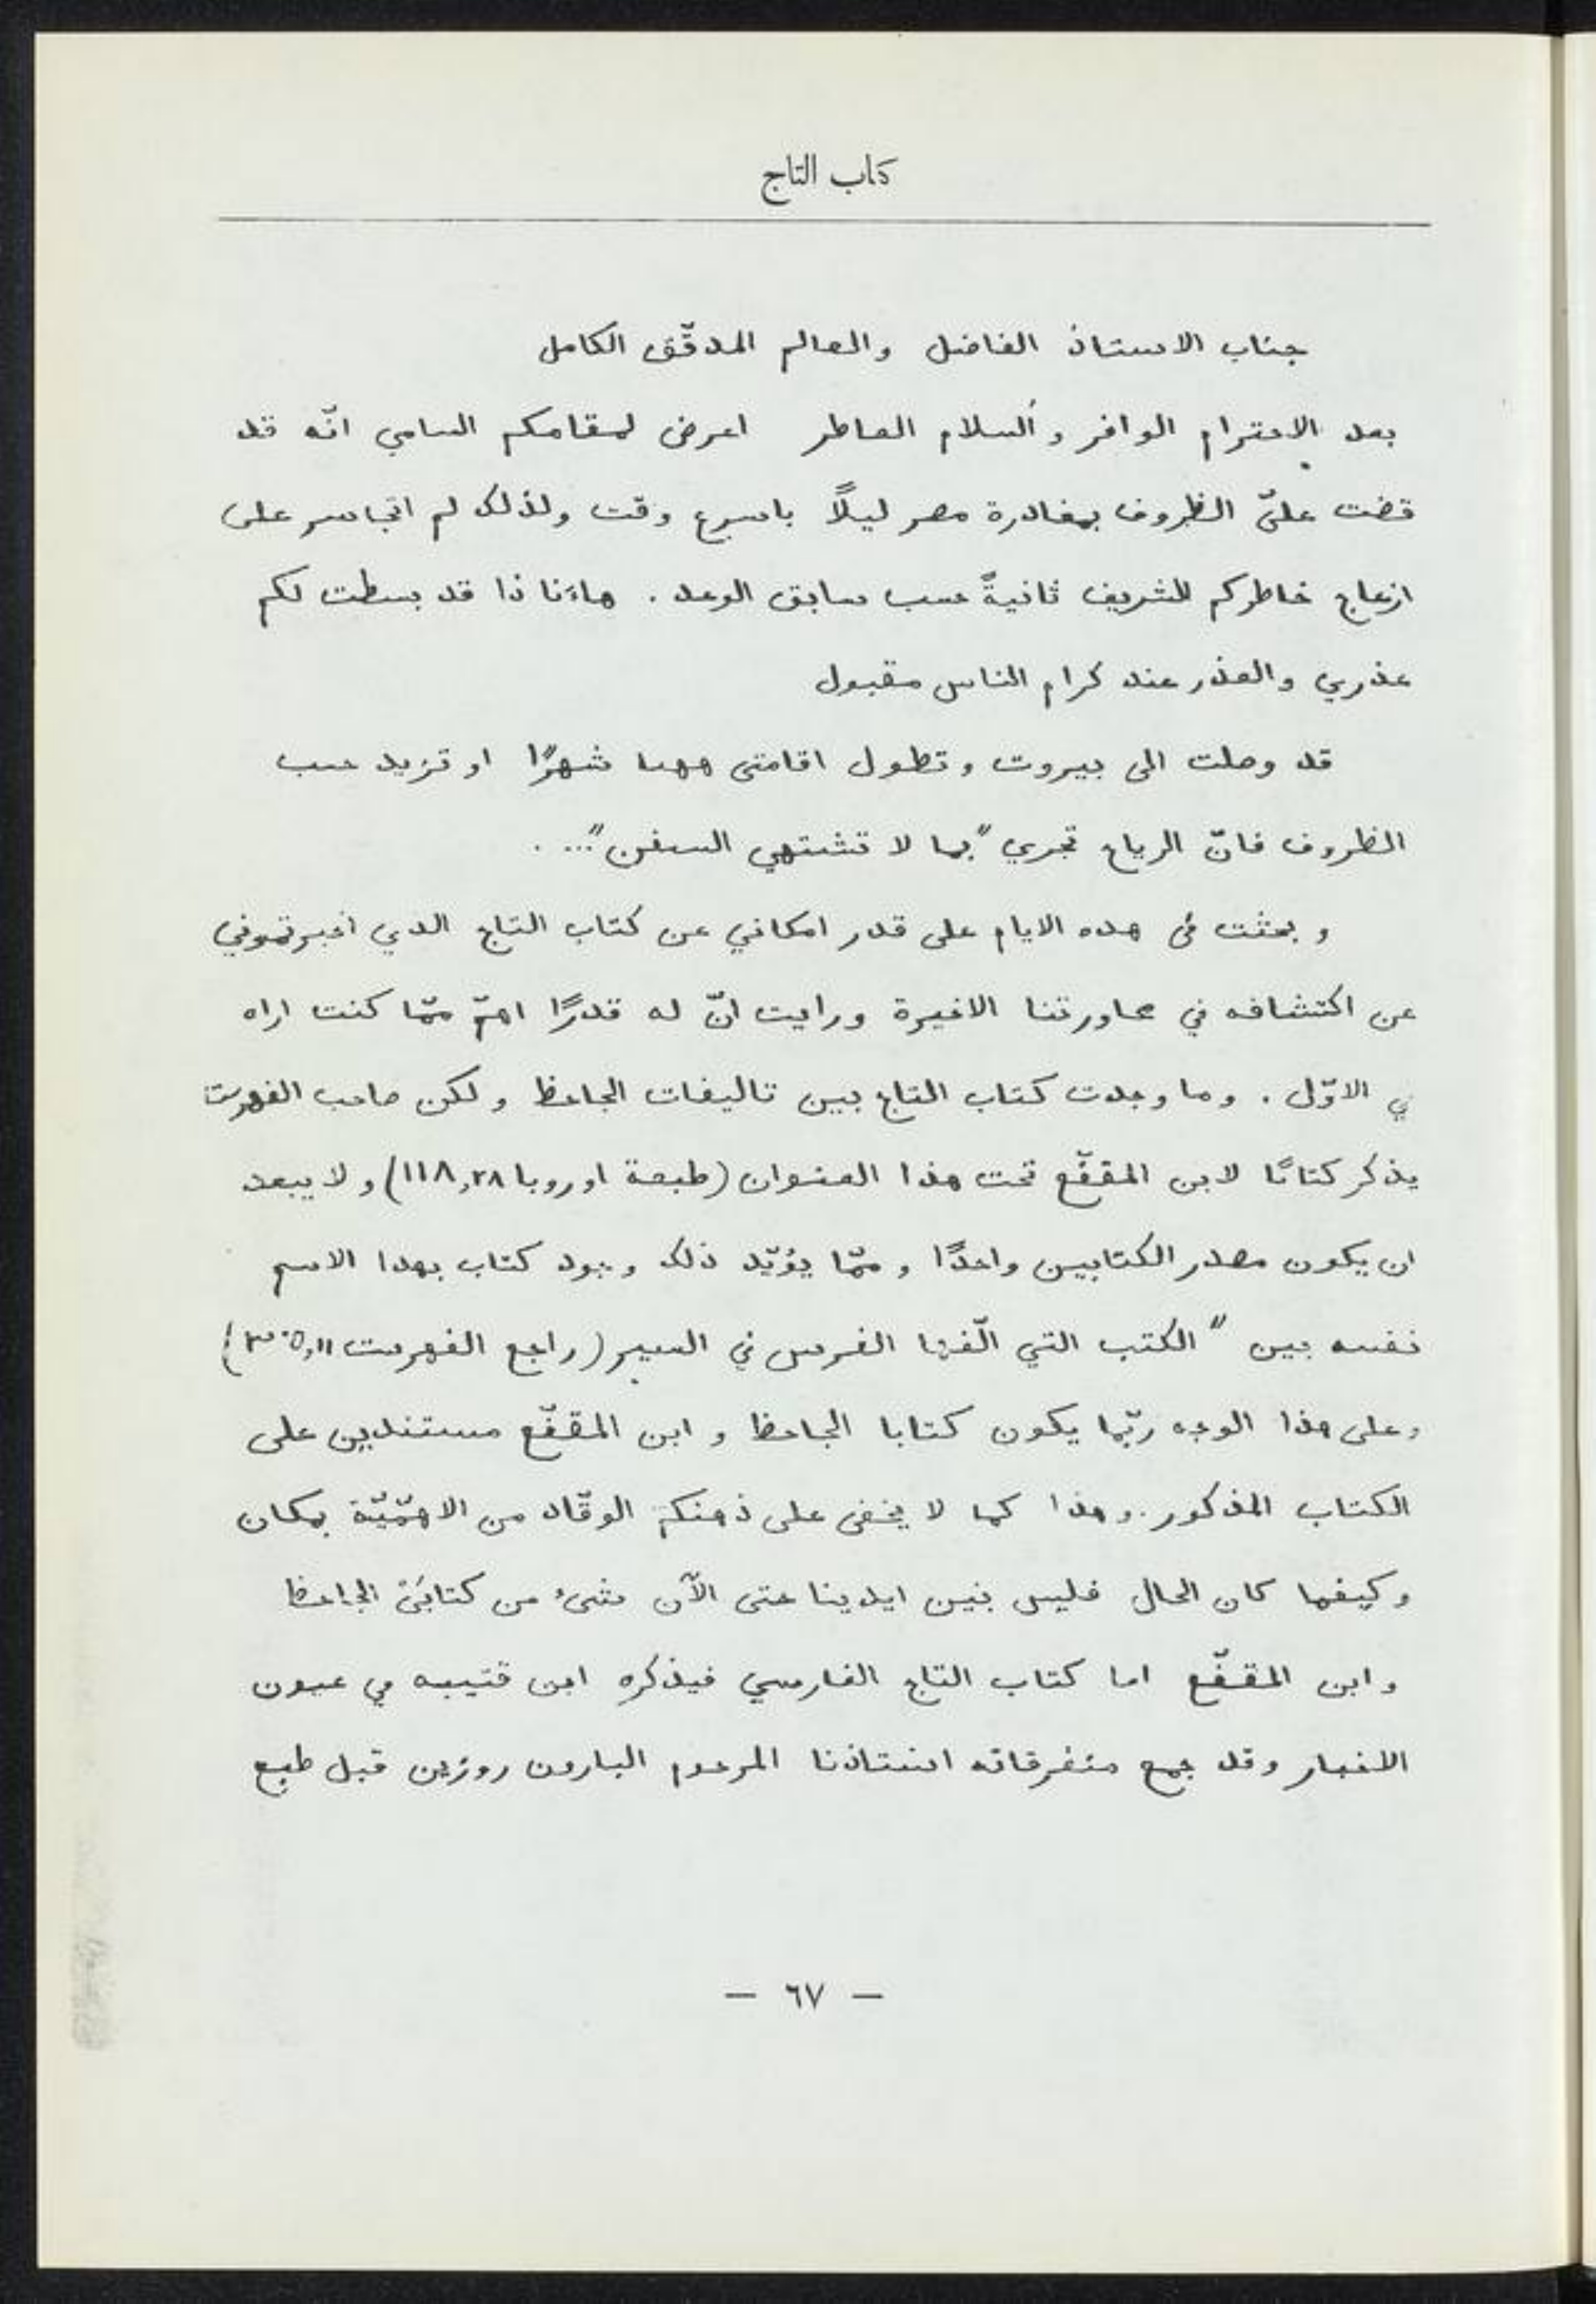 كتاب التاج
جناب الاستاذ الفاضل والعالم المدقّق الكامل
بعد الاحترام الوافر وألسلام العاطر اعرض لمقامكم السامي انّه قد
قضت عليّ الظروف بمغادرة مصر ليلًا باسرع وقت ولذلك لم اتجاسر على
ازعاج خاطركم الشريف ثانيةً حسب سابق الوعد . هاءنا ذا قد بسطت لكم
عذري والعذر عند كرام الناس مقبول
قد وصلت الى بيروت وتطول اقامتى ههنا شهرًا او تزيد حسب
الظروف فانّ الرياح تجري "بما لا تشتهي السفن"... .
وبحثت فى هذه الايام على قدر امكاني عن كتاب التاج الذي اخبرتموني
عن اكتشافه في محاورتنا الاخيرة ورايت انّ له قدرًا اهمّ ممّا كنت اراه
في الاوّل . وما وجدت كتاب التاج بين تاليفات الجاحظ ولكن صاحب الفهرست
يذكر كتابًا لابن المقفّع تحت هذا العنوان (طبعة اوروبا ١١٨,٢٨) ولا يبعد
ان يكون مصدر الكتابين واحدًا وممّا يؤيّد ذلك وجود كتاب بهذا الاسم
نفسه بين "الكتب التي الّفها الفرس في السير (راجع الفهرست ٣٠٥,١١)
وعلى هذا الوجه ربّما يكون كتابا الجاحظ وابن المقفّع مستندين على
الكتاب المذكور. وهذا كما لا يخفى على ذهنكم الوقّاد من الاهمّيّة بمكان
وكيفما كان الحال فليس بين ايدينا حتى الآن شىء من كتابَىْ الجاحظ
وابن المقفّع اما كتاب التاج الفارسي فيذكره ابن قتيبه في عيون
الاخبار وقد جمع متفرقاته استاذنا المرحوم البارون روزين قبل طبع
— ٦٧ —